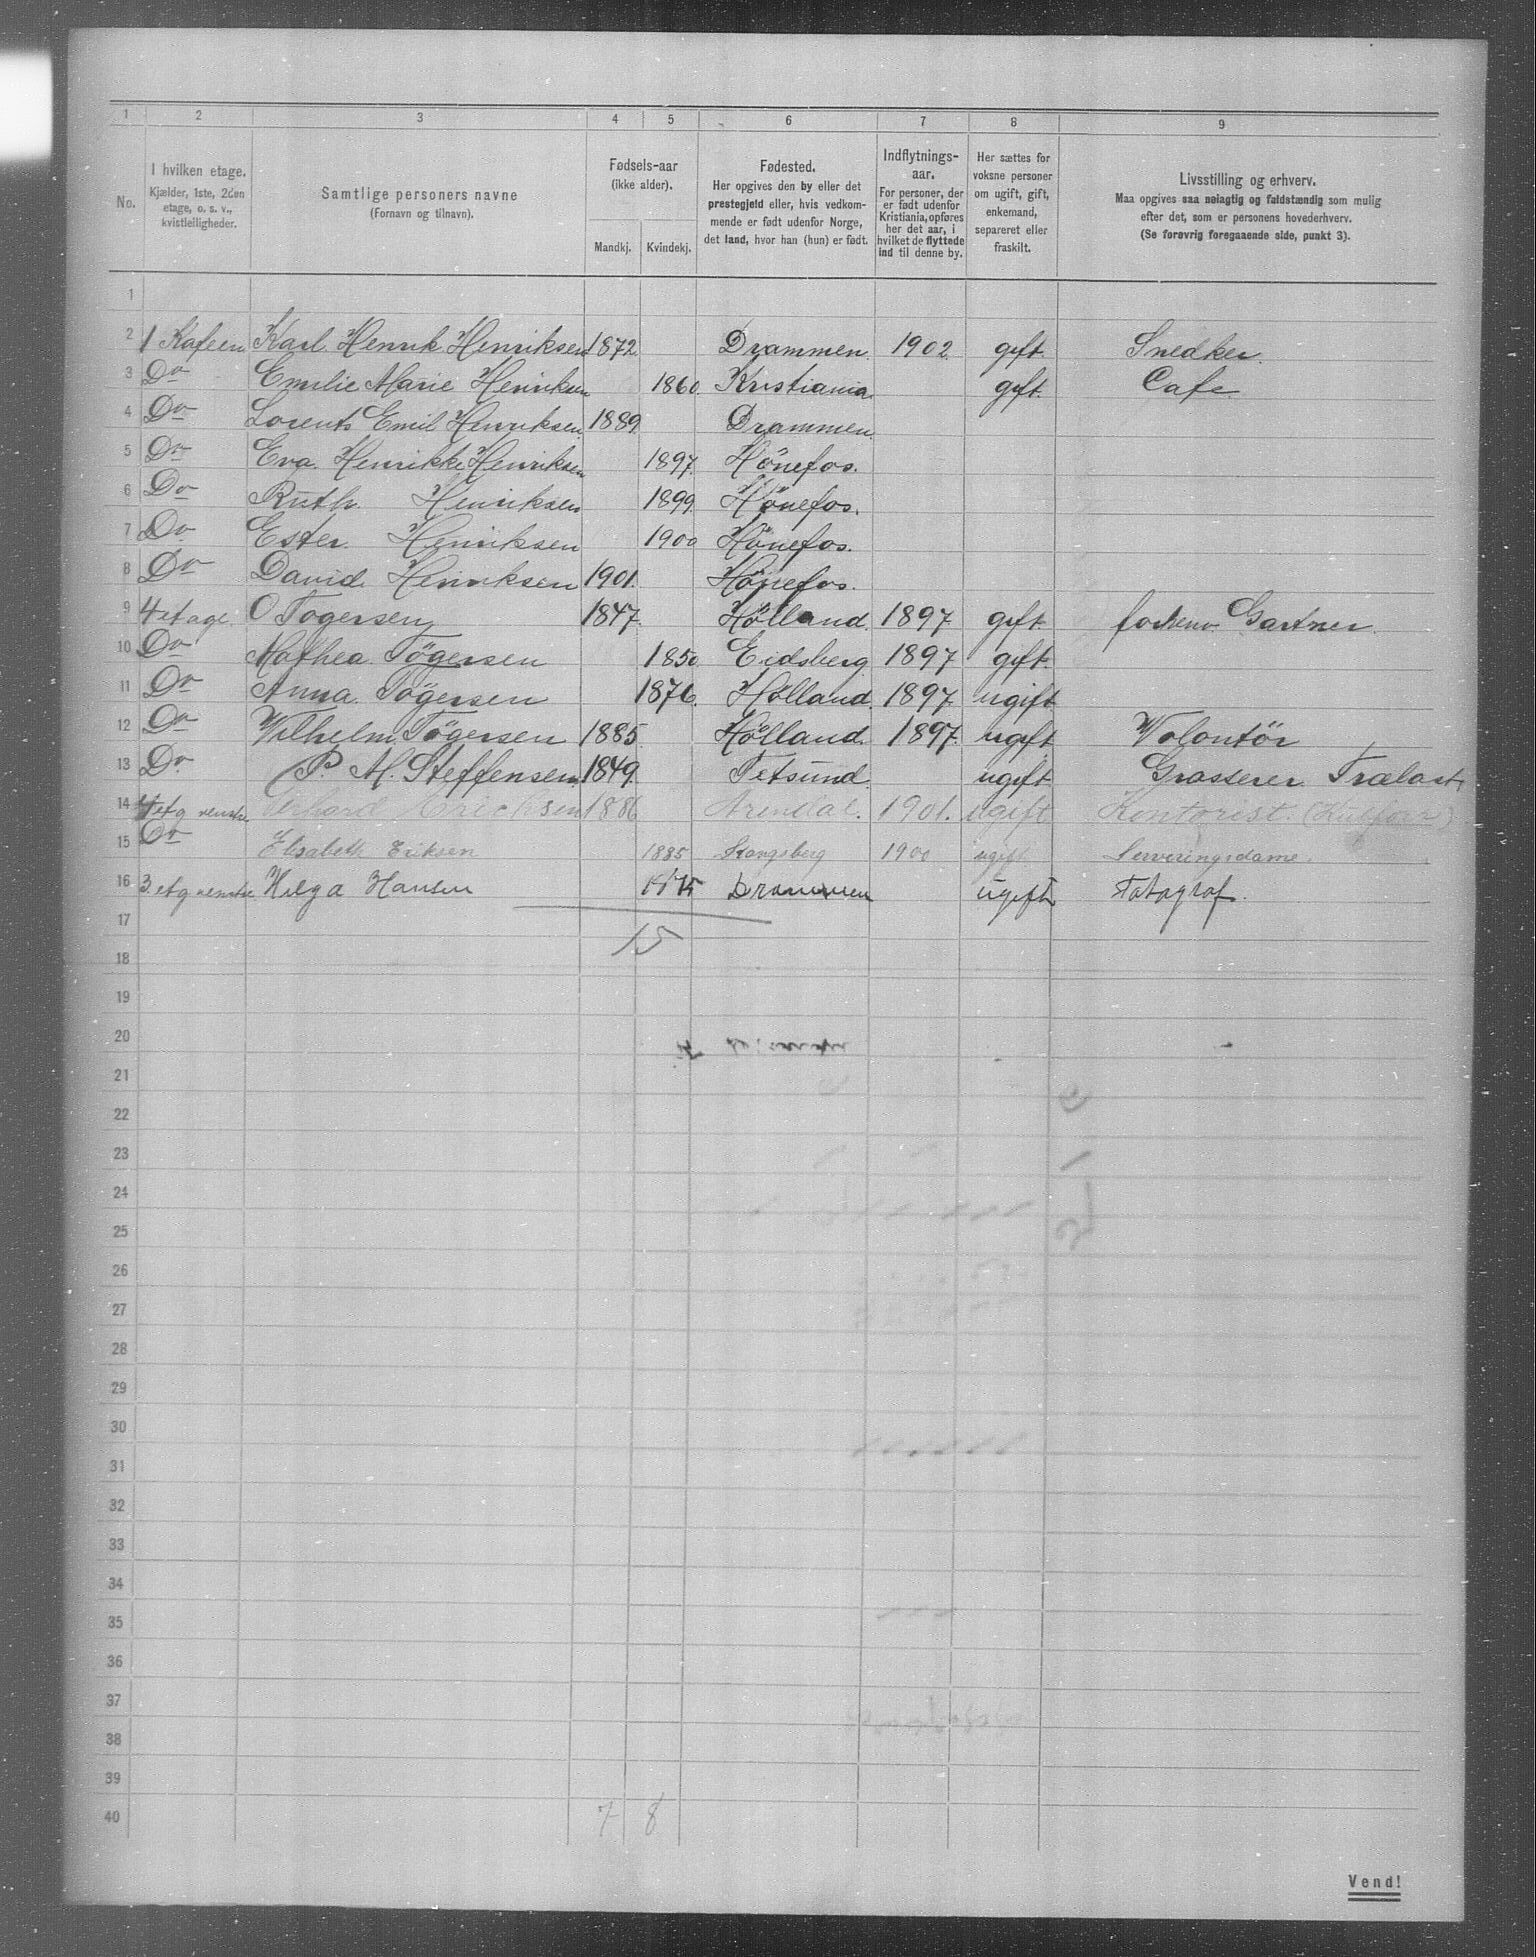 1 2 3 4 5 6 7 8 9
No.
I hvilken etage.
Kjælder, 1ste, 2den
etage, o. s. v.,
kvistleiligheder.
Samtlige personers navne
(Fornavn og tilnavn).
Fødsels-aar
(ikke alder).
Mandkj. Kvindekj.
Fødested.
Her opgives den by eller det
prestegjeld eller, hvis vedkom-
mende er født udenfor Norge,
det land, hvor han (hun) er født.
Indflytnings-
aar.
For personer, der
er født udenfor
Kristiania, opføres
her det aar, i
hvilket de flyttede
ind til denne by.
Her sættes for
voksne personer
om ugift, gift,
enkemand,
separeret eller
fraskilt.
Livsstilling og erhverv.
Maa opgives saa nøiagtig og fuldstændig som mulig
efter det, som er personens hovederhverv.
(Se forøvrig foregaaende side, punkt 3).
1
2 1 Kafeen Karl Henrik Henriksen 1872 Drammen 1902 gift. Snedker.
3 Do Emilie Marie Henriksen 1860 Kristiania gift. Cafe
4 Do Lorents Emil Henriksen 1889 Drammen.
5 Do Eva Henrikke Henriksen 1897 Hönefos.
6 Do Ruth Henriksen 1899 Hönefos.
7 Do Ester Henriksen 1900 Hönefos.
8 Do David Henriksen 1901. Hönefos.
9 4 etage O Togersen 1847 Hölland 1897 gift. Gartner
10 Do Mathea Tögersen 1850 Eidsberg 1897 gift.
11 Do Anna Tögersen 1876. Hölland. 1897 ugift
12 Do Vilhelm Tögersen 1885 Hölland. 1897. ugift Volontör
13 Do P. M. Steffensen 1849. Fetsund ugift Grosserer Trælast
14 4 etg venstre Erichsen 1886 Arendal. 1901. ugift Kontorist.
15 Do Elisabeth Eriksen 1885 Kongsberg 1900 ugift Serveringsdame.
16 3 etg venstre Helga Hansen 1875 Drammen ugift Fotograf.
17
15
18
19
20
21
22
23
24
25
26
27
28
29
30
31
32
33
34
35
36
37
38
39
40 7 8
Vend!